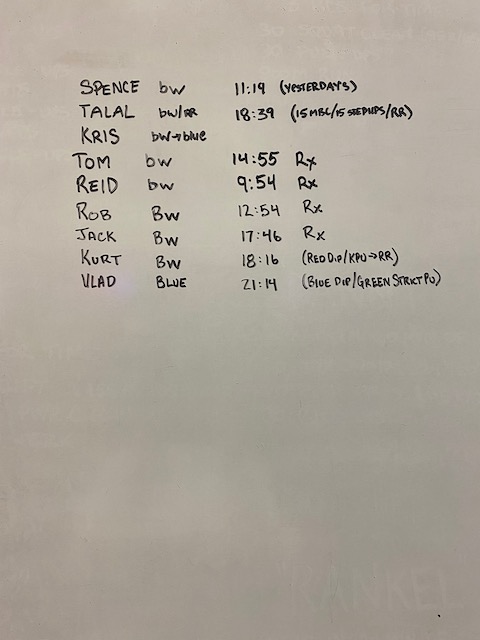 SPENCE bw 11:19 (YESTERDAY'S)
TALAL bw/RR 18:39 (15 MBC/15 STEPUPS/RR)
KRIS bw→blue
TOM bw 14:55 Rx
REID bw 9:54 Rx
ROB BW 12:54 Rx
JACK BW 17:46 Rx
KURT BW 18:16 (RED DIP/KPU→RR)
VLAD BLUE 21:14 (BLUE DIP/GREEN STRICT PU)
KANKEL